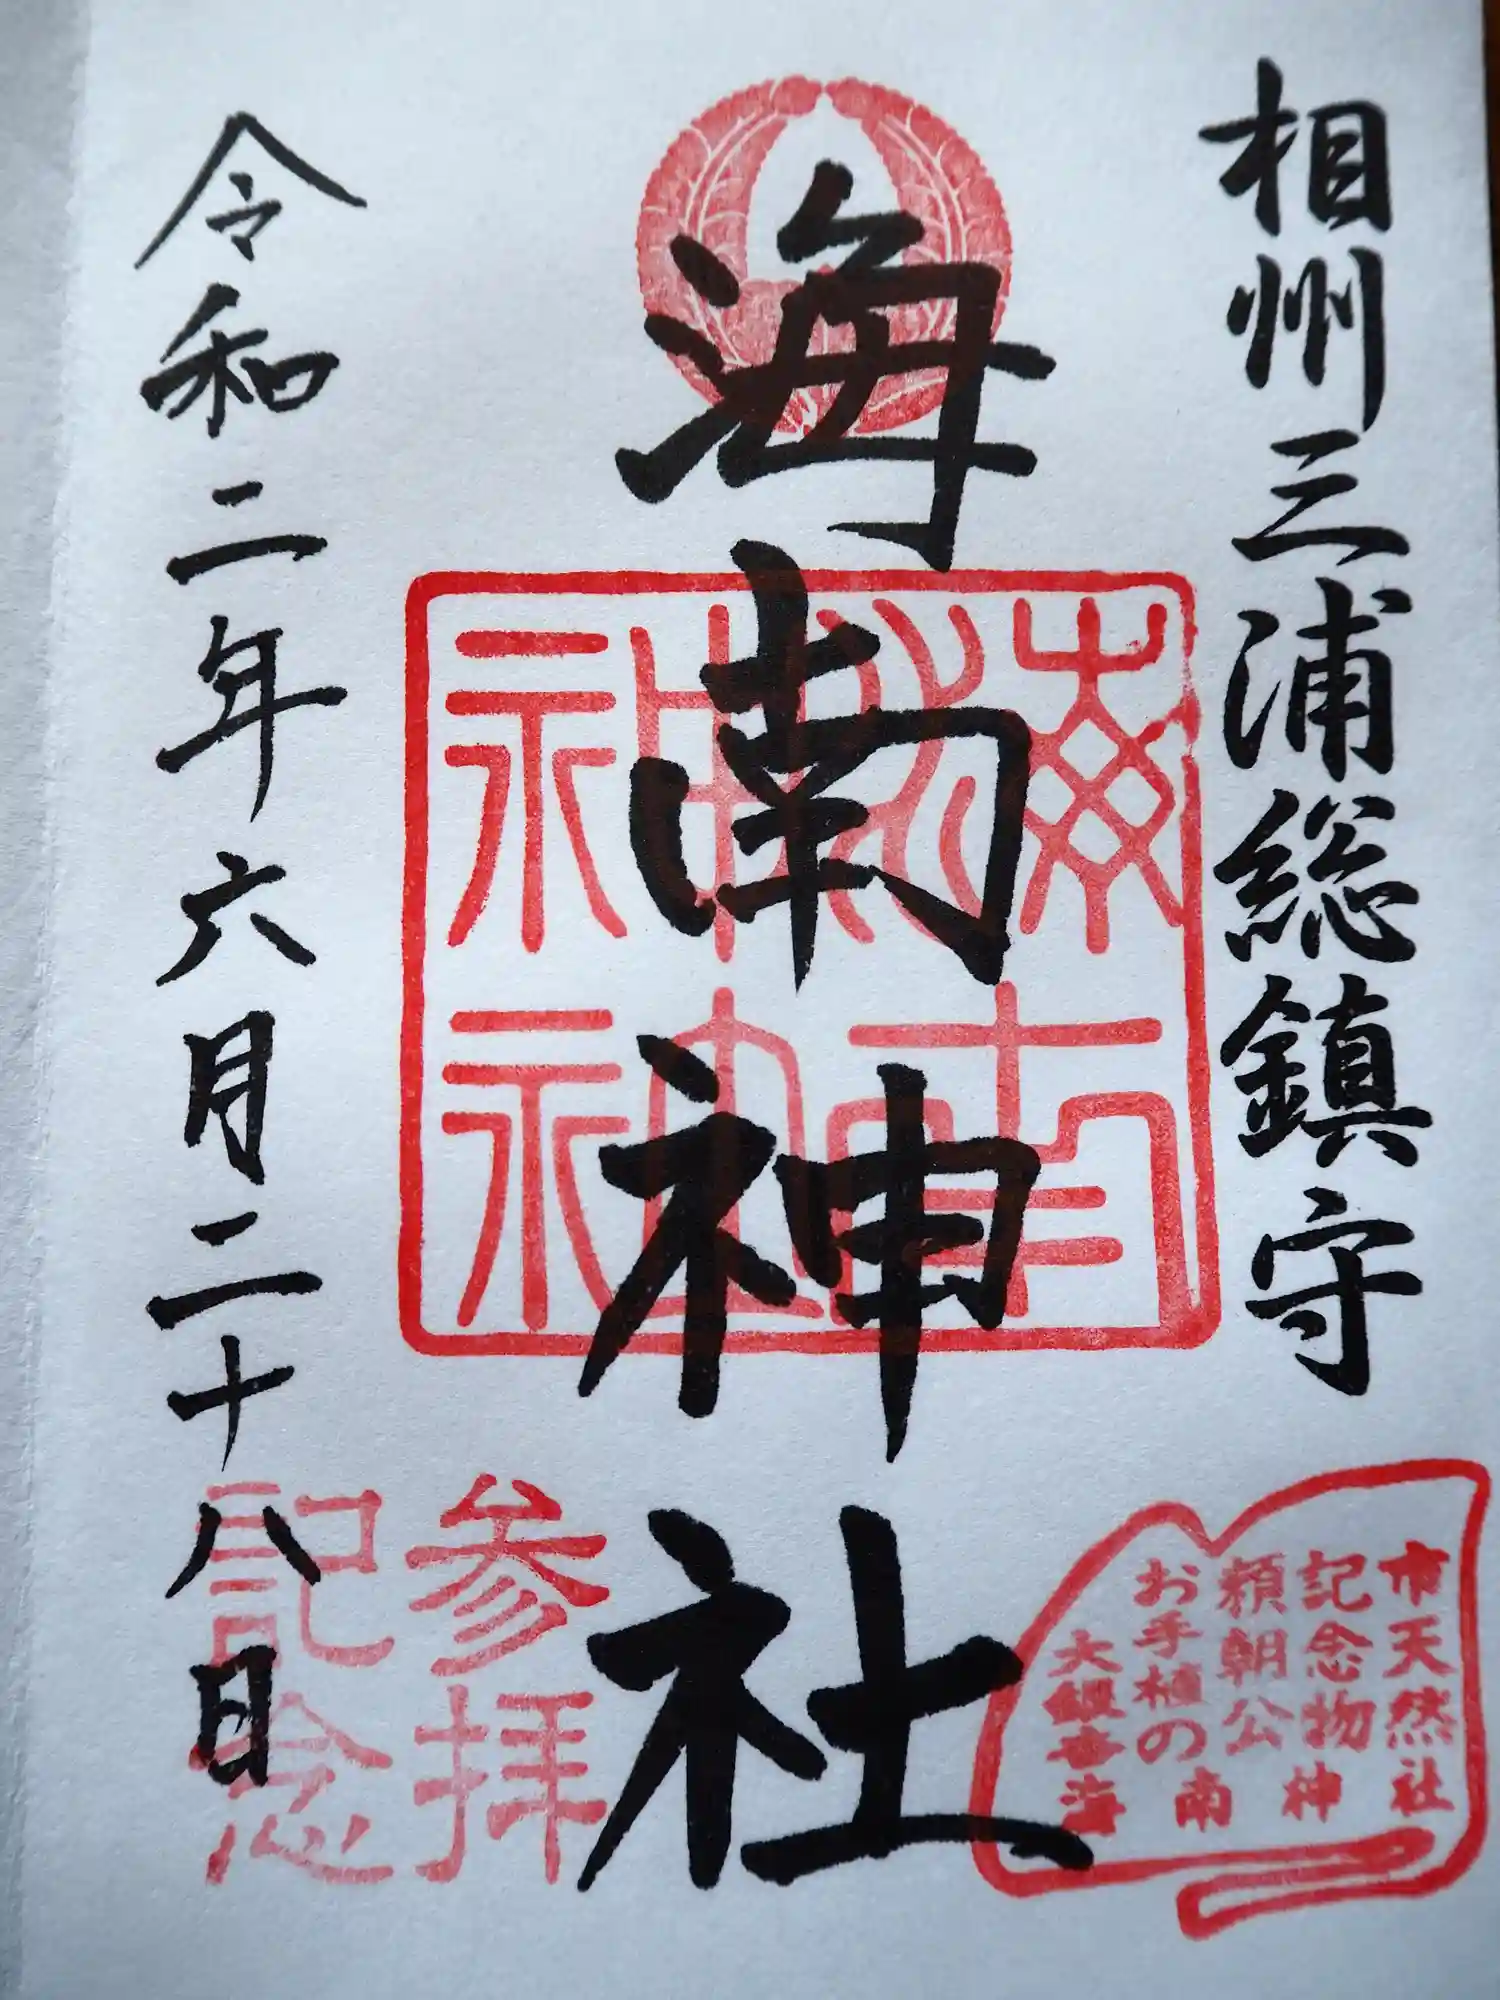 相州三浦総鎮守
海南神社
海南
神社
令和二年六月二十八日
参拝
記念
市天然
記念物
頼朝公
お手植の
大銀杏
海南神社